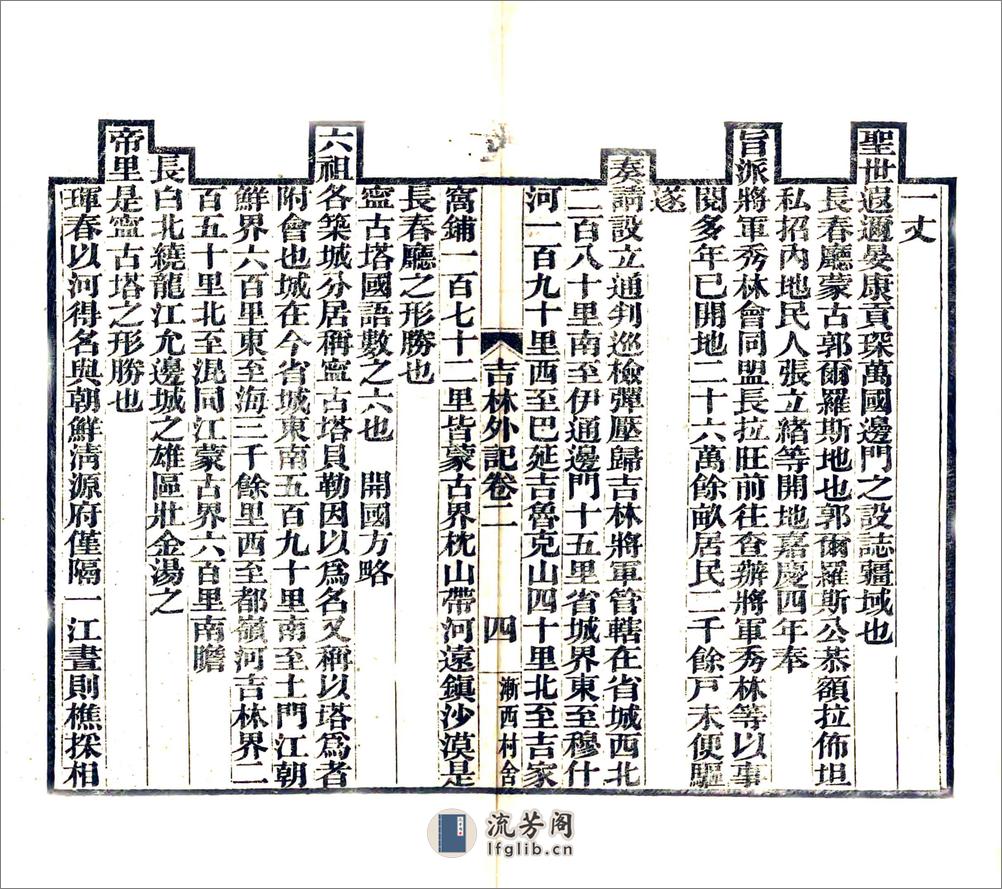 一丈
聖世遐邇晏康貢琛萬國邊門之設誌疆域也
長春廳蒙古郭爾羅斯地也郭爾羅斯公恭額拉佈坦
私招內地民人張立緒等開地嘉慶四年奉
旨派將軍秀林會同盟長拉旺前往查辦將軍秀林等以事
閱多年已開地二十六萬餘畝居民二千餘戶未便驅
逐
奏請設立通判巡檢彈壓歸吉林將軍管轄在省城西北
二百八十里南至伊通邊門十五里省城界東至穆什
河一百九十里西至巴延吉魯克山四十里北至吉家
吉林外記卷二 四 漸西村舍
窩鋪一百七十二里皆蒙古界枕山帶河遠鎮沙漠是
長春廳之形勝也
寧古塔國語數之六也 開國方略
六祖各築城分居稱寧古塔貝勒因以爲名又稱以塔爲者
附會也城在今省城東南五百九十里南至土門江朝
鮮界六百里東至海三千餘里西至都嶺河吉林界二
百五十里北至混同江蒙古界六百里南瞻
長白北繞龍江允邊城之雄區壯金湯之
帝里是寧古塔之形勝也
琿春以河得名與朝鮮淸源府僅隔一江晝則樵採相
流芳阁
lfglib.cn